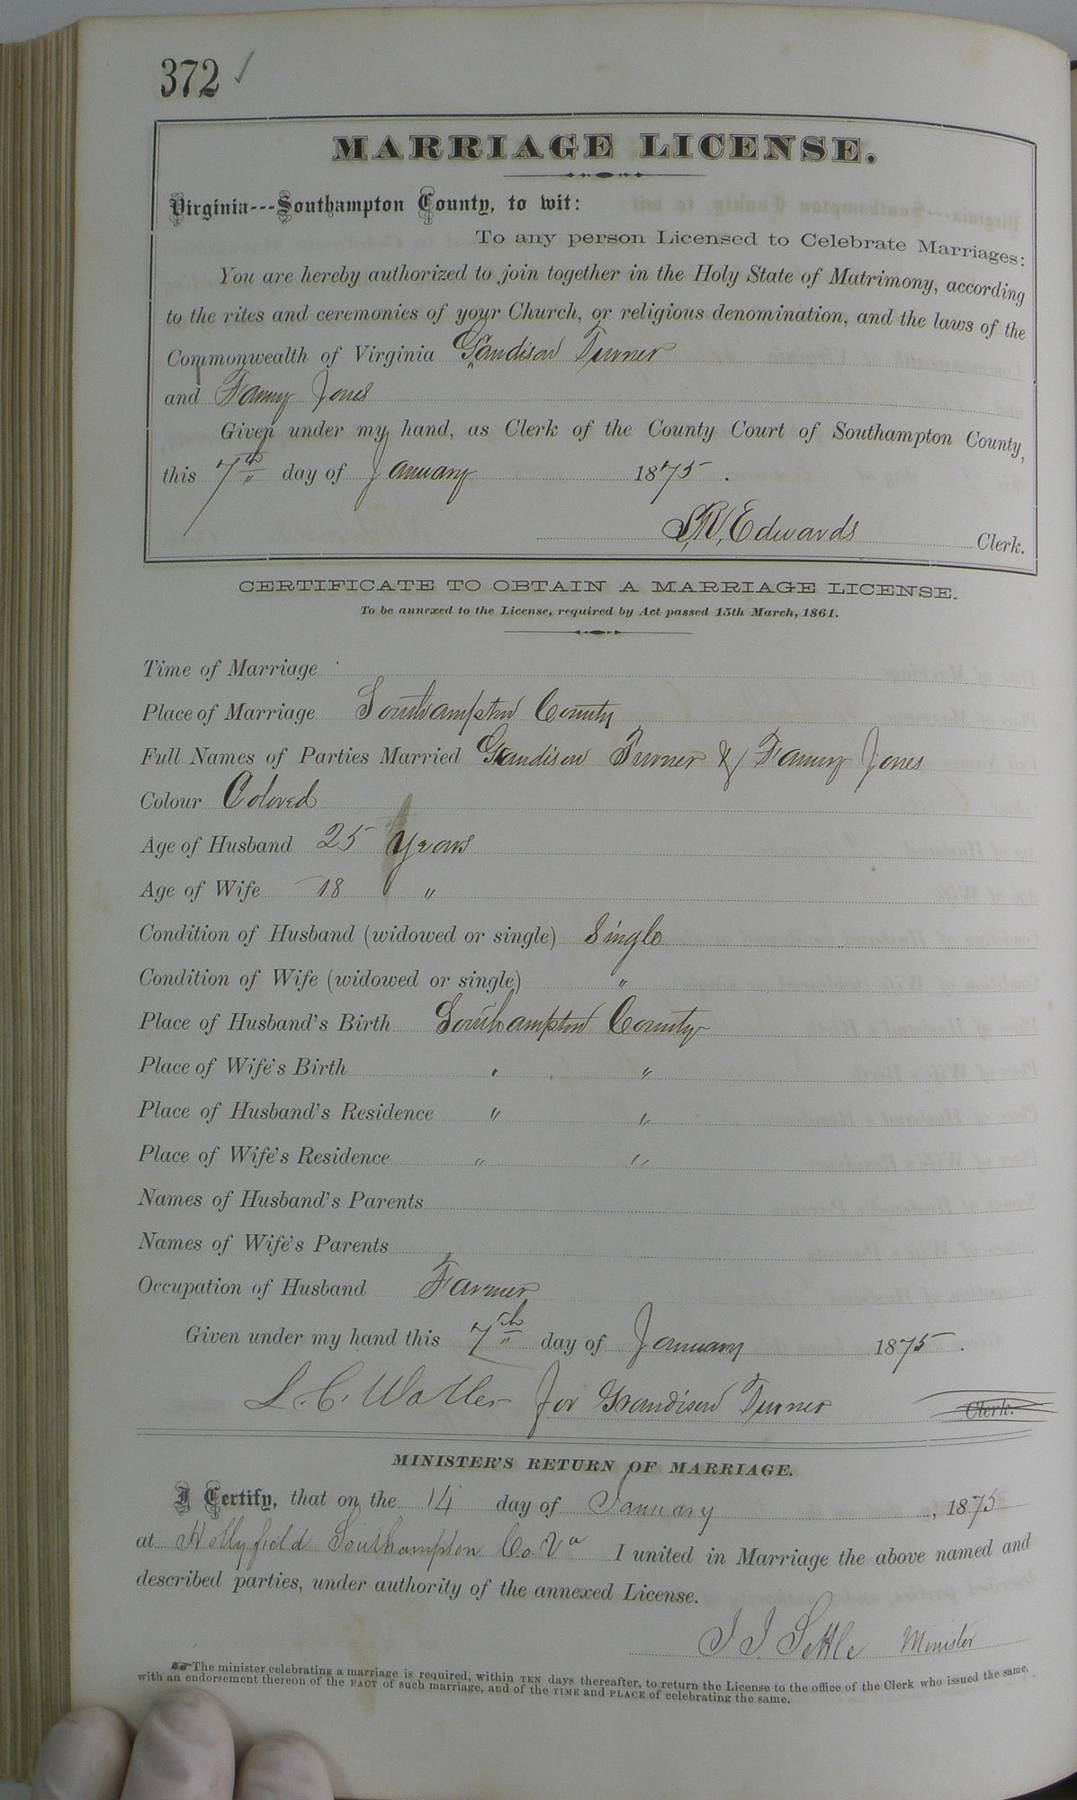 372 ✓
MARRIAGE LICENSE.
Virginia---Southampton County, to wit:
To any person Licensed to Celebrate Marriages:
You are hereby authorized to join together in the Holy State of Matrimony, according
to the rites and ceremonies of your Church, or religious denomination, and the laws of the
Commonwealth of Virginia Grandison Turner
and Fanny Jones
Given under my hand, as Clerk of the County Court of Southampton County,
this 7th day of January 1875.
Edwards Clerk.
CERTIFICATE TO OBTAIN A MARRIAGE LICENSE.
To be annexed to the License, required by Act passed 15th March, 1861.
Time of Marriage
Place of Marriage Southampton County
Full Names of Parties Married Grandison Turner & Fanny Jones
Colour Colored
Age of Husband 25 years
Age of Wife 18 "
Condition of Husband (widowed or single) Single
Condition of Wife (widowed or single) "
Place of Husband's Birth Southampton County
Place of Wife's Birth " "
Place of Husband's Residence " "
Place of Wife's Residence " "
Names of Husband's Parents
Names of Wife's Parents
Occupation of Husband Farmer
Given under my hand this 7th day of January 1875.
for Grandison Turner Clerk.
MINISTER'S RETURN OF MARRIAGE.
I Certify, that on the 14 day of January, 1875
at Hollyfield Southampton Co. Va I united in Marriage the above named and
described parties, under authority of the annexed License.
J J. Settle Minister
☞The minister celebrating a marriage is required, within TEN days thereafter, to return the License to the office of the Clerk who issued the same,
with an endorsement thereon of the FACT of such marriage, and of the TIME and PLACE of celebrating the same.